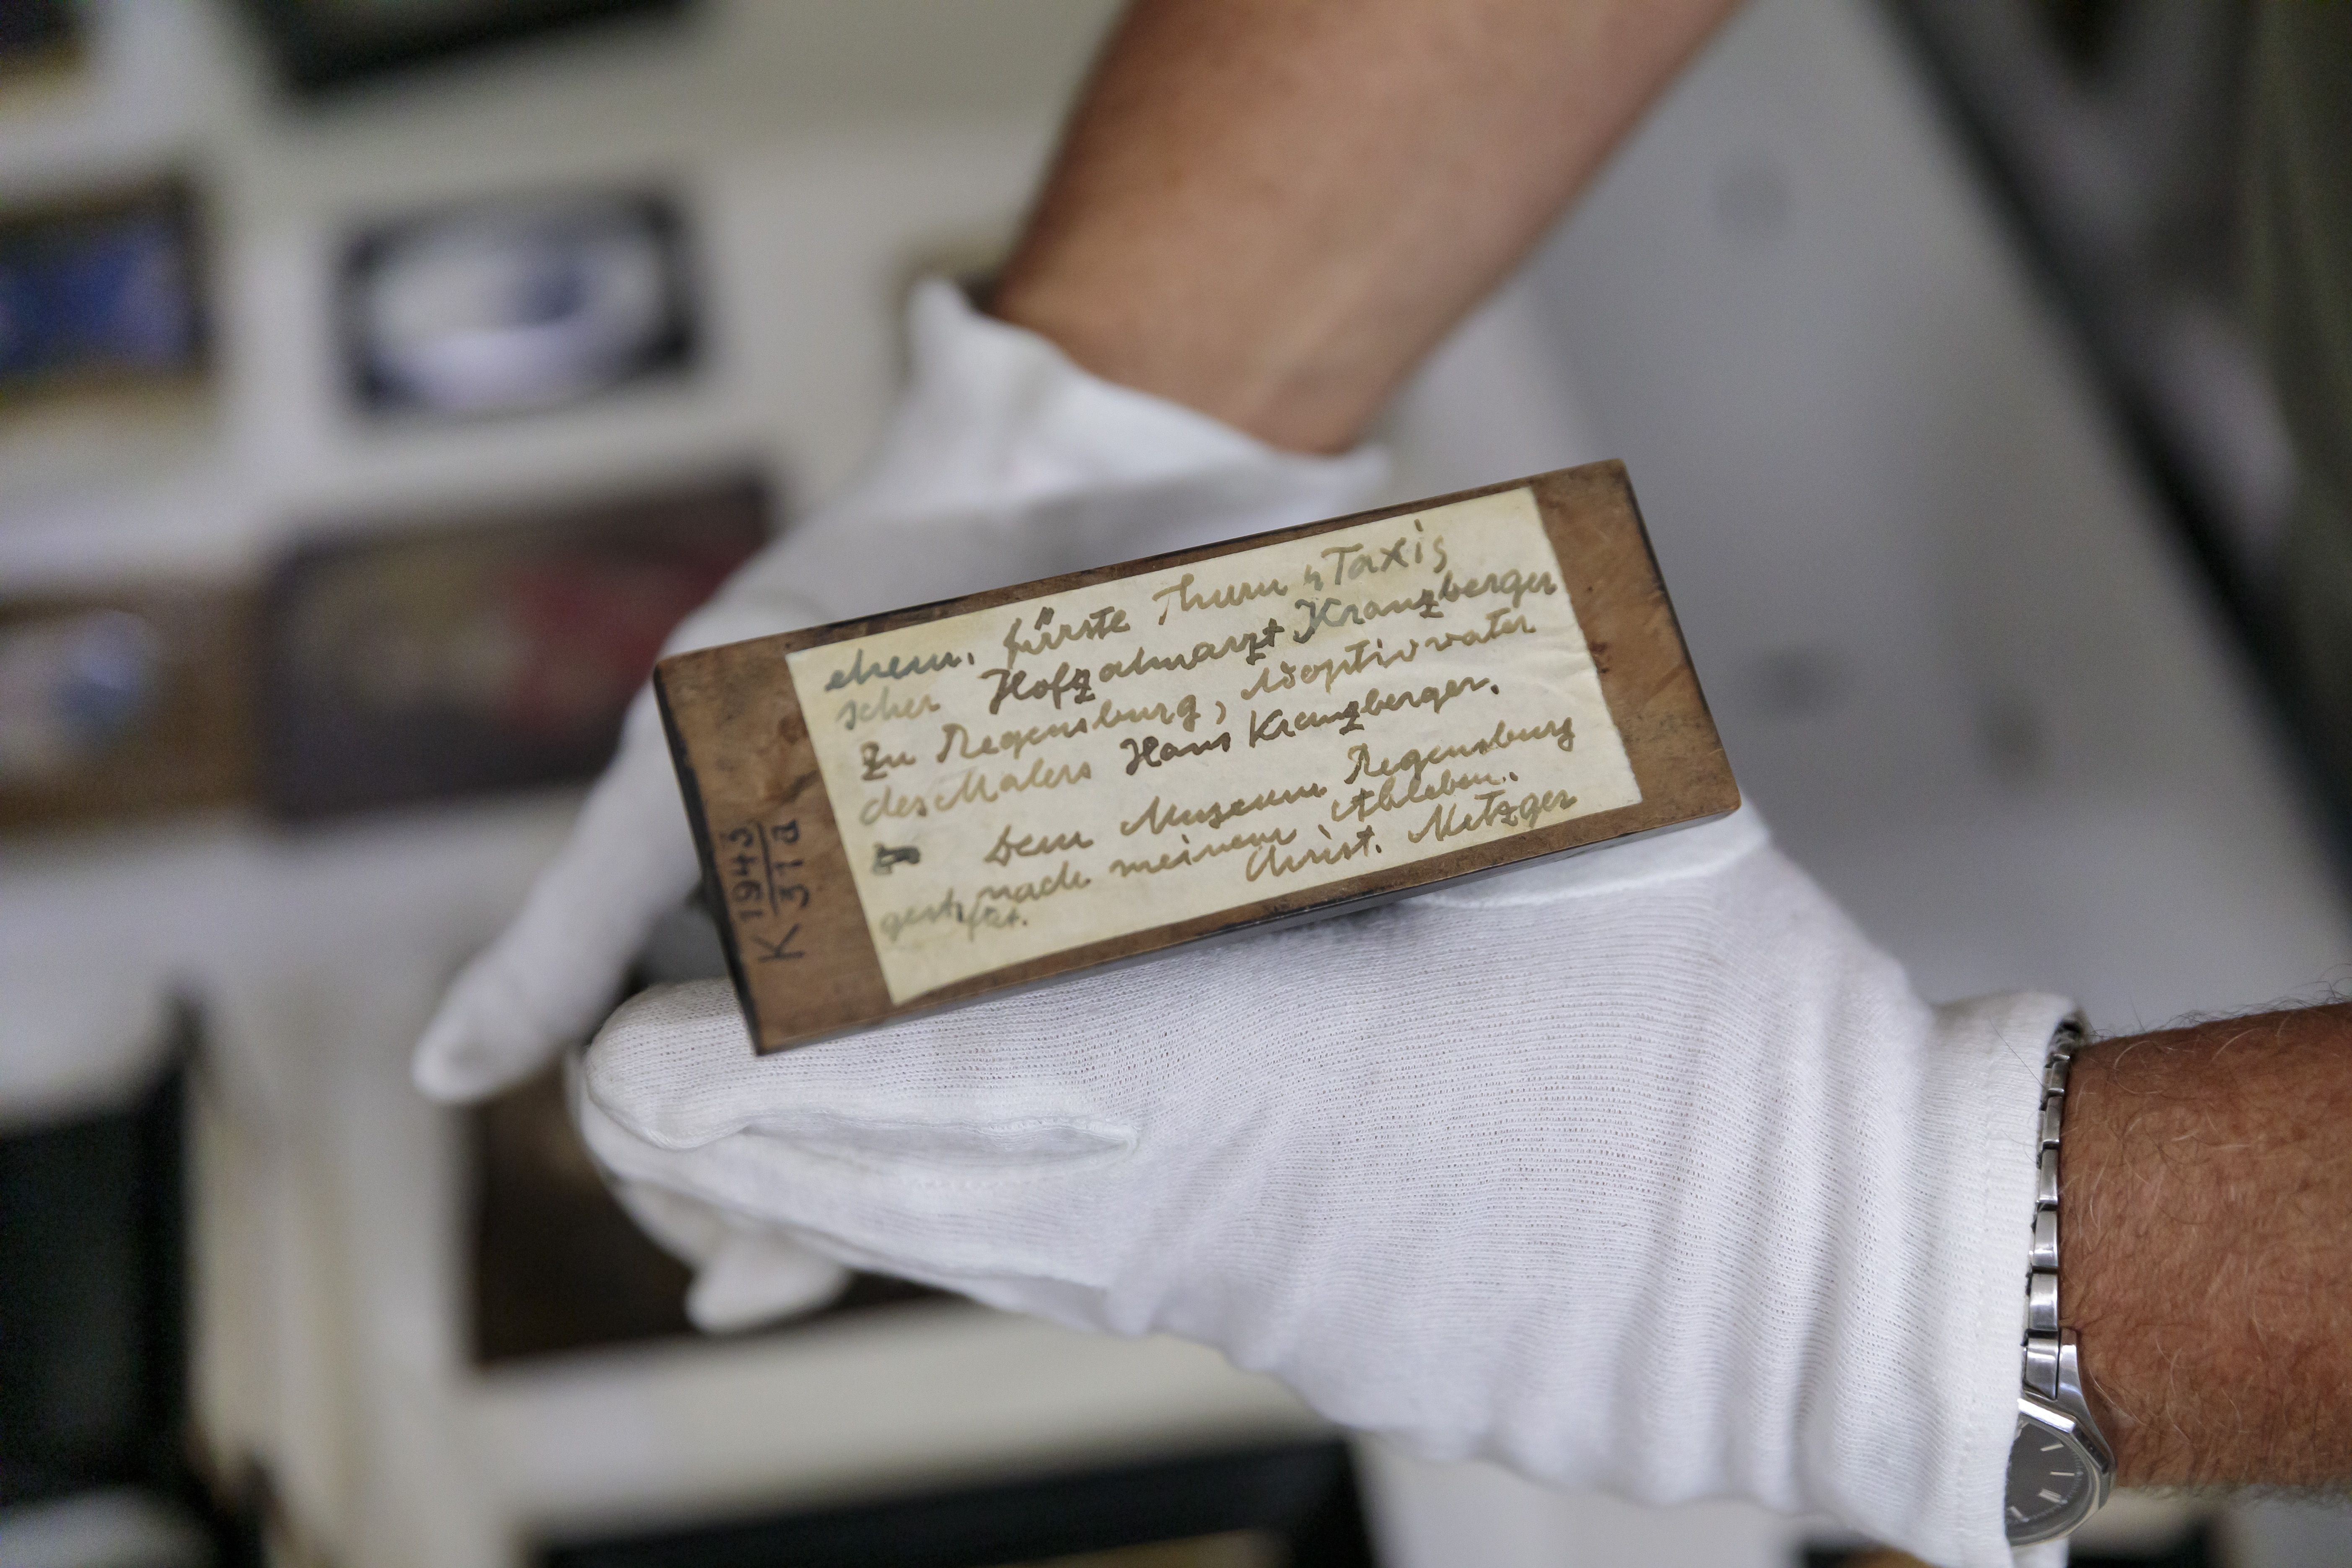 ehem. fürste Thurn u Taxis
scher Hofzahnarzt Kranzberger
zu Regensburg, Adoptivvater
des Malers Hans Kranzberger.
Dem Museum Regensburg
gest. nach meinem Ableben.
Christ. Metzger
K 1943
31a